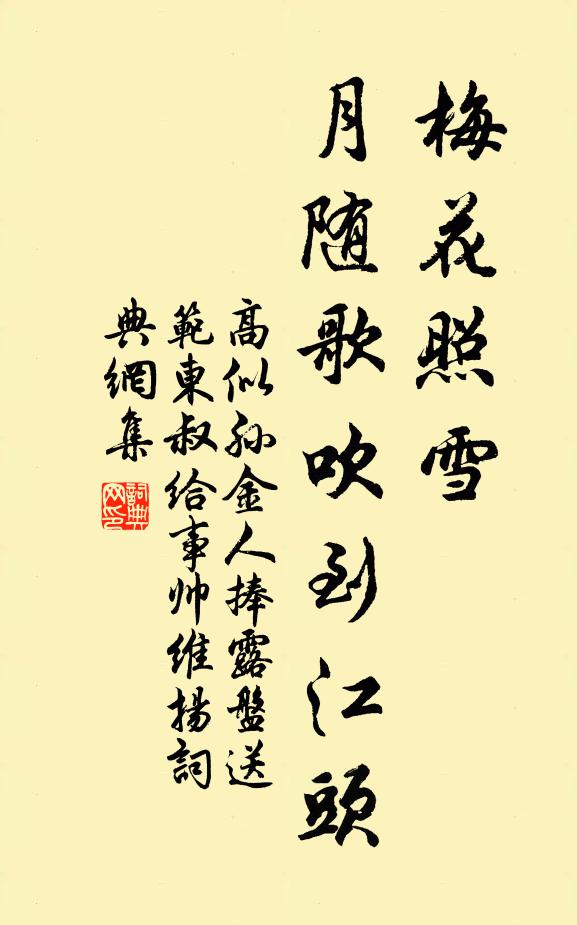 梅花照雪
月随歌吹到江頭
高似孙金人捧露盤送
範東叔给事帅维揚詞
典網集
詞典网印